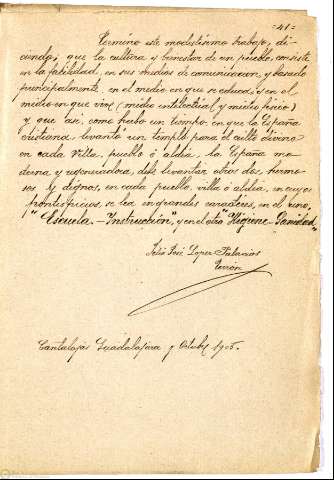 =41=
Termino este modestísimo trabajo, di-
ciendo; que la cultura y bienestar de un pueblo, consiste
en la facilidad, en sus medios de comunicacion, y basado
principalmente en el medio en que se educa, y en el
medio en que vive (medio intelectual y medio fisico)
y que asi, como hubo un tiempo, en que la España
cristiana levantó un templo para el culto divino
en cada villa, pueblo ó aldea, la España mo-
derna y regeneradora, debe levantar otros dos, hermo-
sos y dignos, en cada pueblo, villa ó aldea, en cuyos
frontispicios, se lea en grandes carácteres, en el uno,
"Escuela. - Instrucción", y en el otro "Higiene - Sanidad"
José Lopez-Palacios
Terrón
Cantalojas Guadalajara y Octubre 1905.